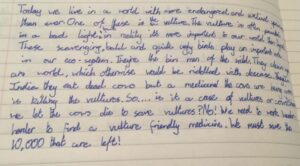 Today we live in a world with more endangered and extinct species
than ever. One of these is the vulture. The vulture is often painted
in a bad light, in reality it's more important to our world than
These scavenging, bald and quite ugly birds play an important role
in our eco-system. They're the bin men of the wild. They clean
our world, which otherwise would be riddled with disease.
India they eat dead cows but a medicine the cows are
is killing the vultures. So.... is it a case of vultures or cows
we let the cows die to save vultures? No! We need to work
harder to find a vulture friendly medicine. We must save the
10,000 that are left!